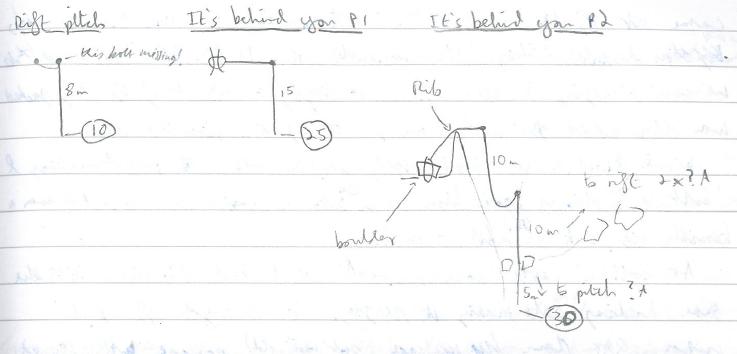 Rift pitch
It's behind you P1
It's behind you P2
this bolt missing!
8m
10
15
25
Rib
10m
boulder
to rift 2x?A
10m
5m
to pitch ?A
30